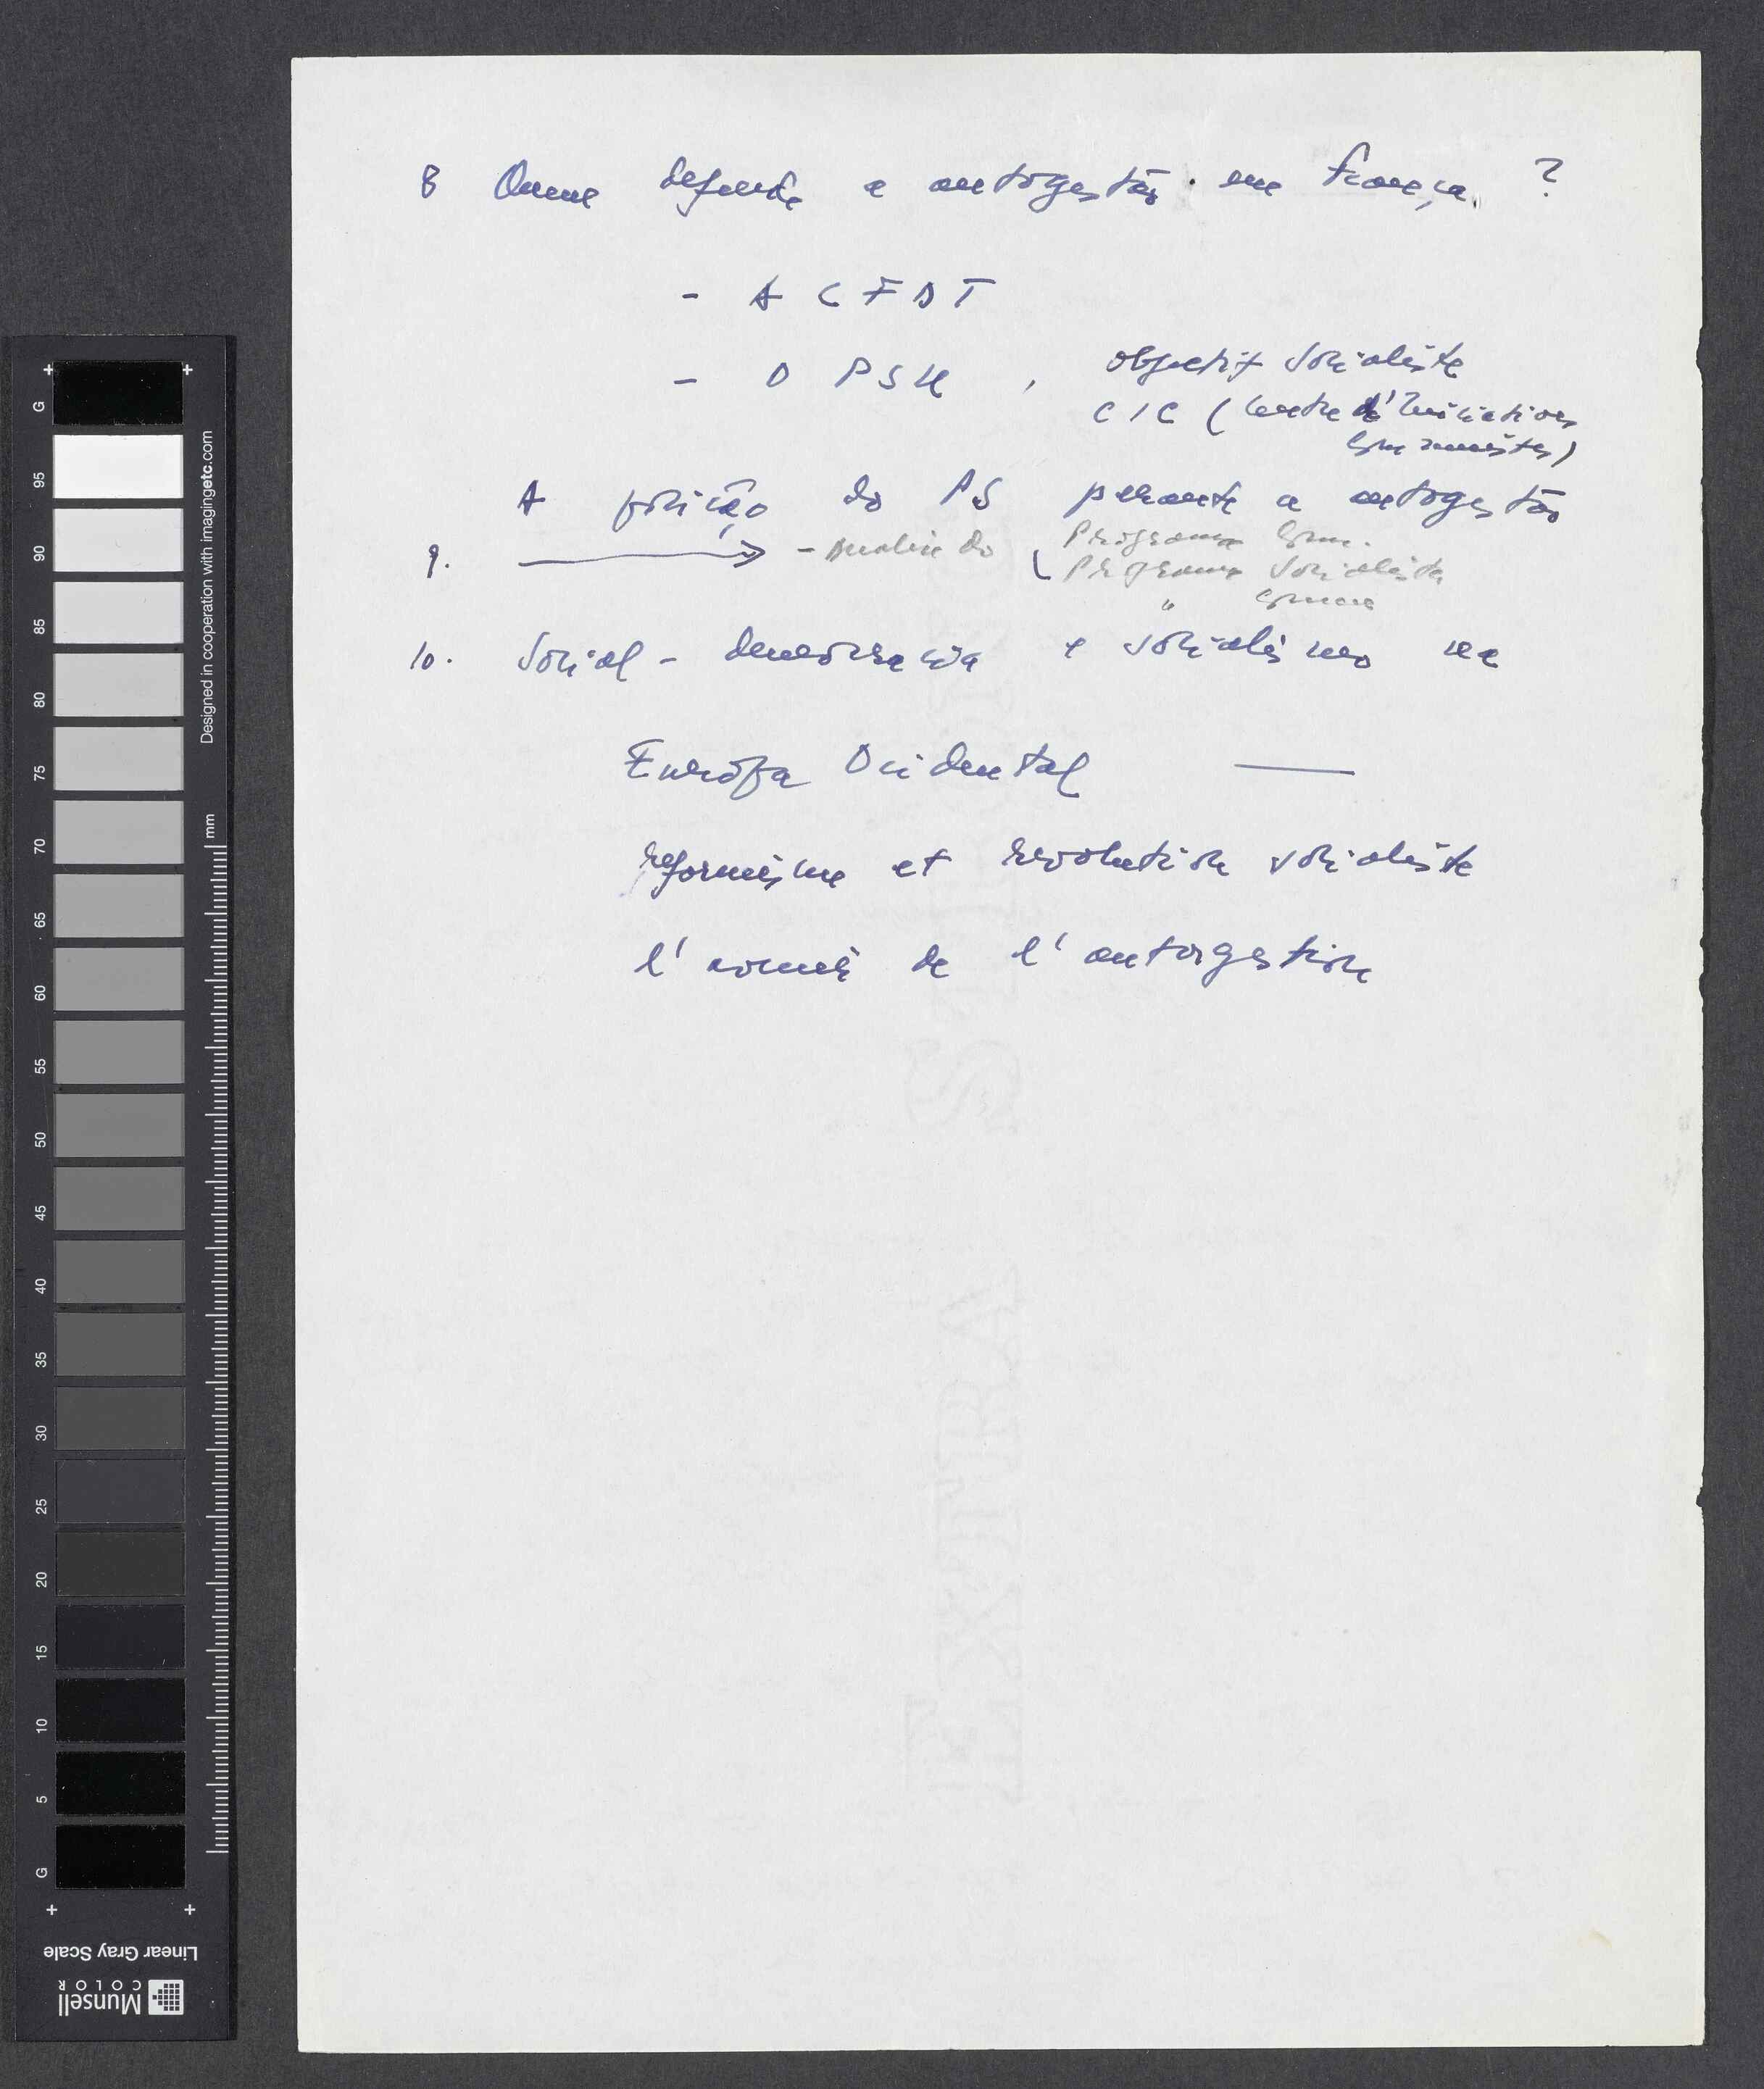 8 Quem defende a autogestão em França ?
- A CFDT
- O PSU , Objectif Socialiste
CIC (Centre d'Initiatives
Communistes)
A posição do PS perante a autogestão
9. - Analise do Programa Com.
Programa Socialista
" Comum
10. Social-democracia e socialismo na
Europa Ocidental —
reformisme et revolution socialiste
l' de l'autogestion
G
95
90
85
80
75
70
65
60
55
50
45
40
35
30
25
20
15
10
5
G
mm
Designed in cooperation with imagingetc.com
Linear Gray Scale
Munsell
COLOR